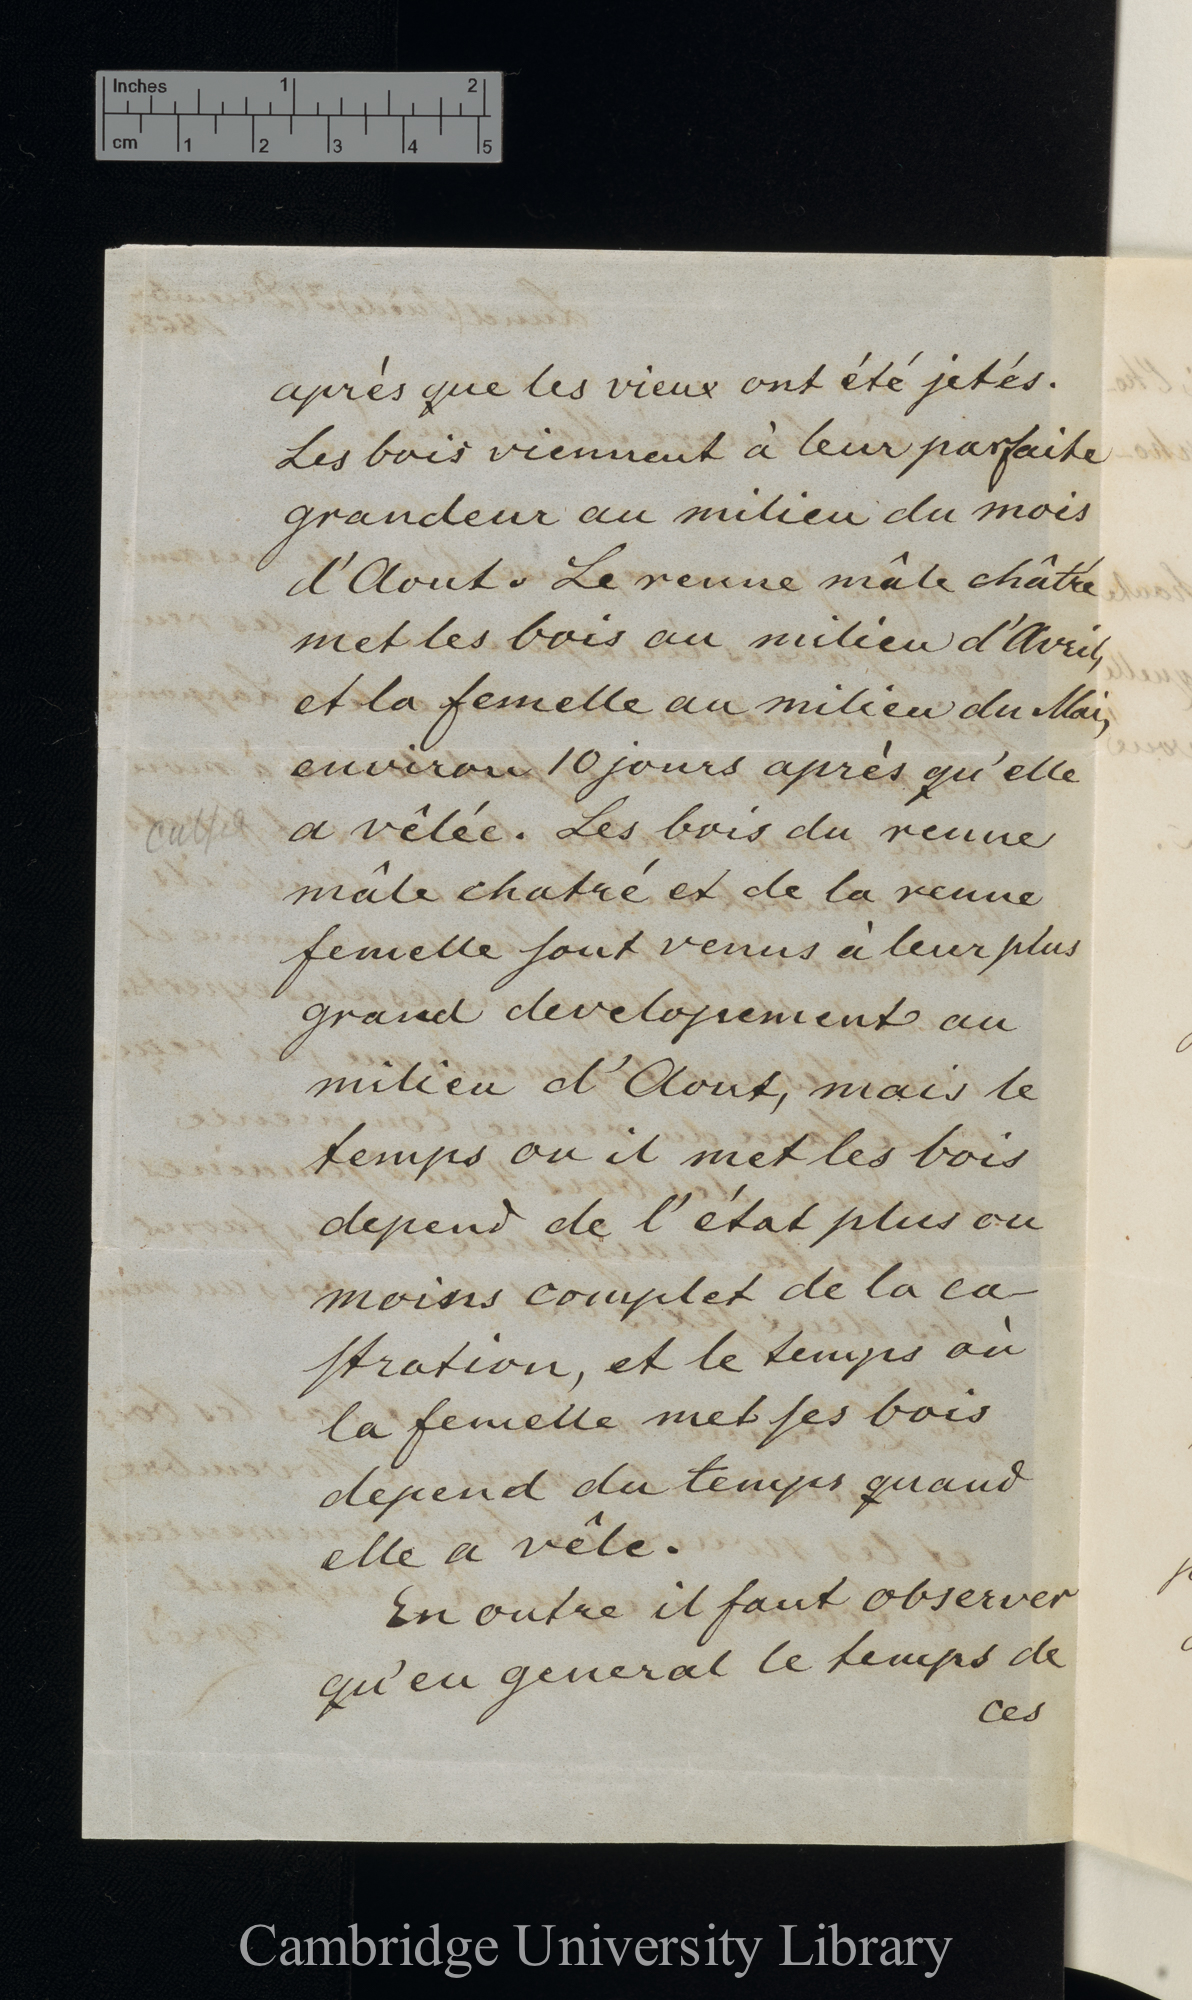 Inches 1 2
cm 1 2 3 4 5
après que les vieux ont été jetés.
Les bois viennent à leur parfaite
grandeur au milieu du mois
d'Aout. Le renne mâle châtré
met les bois au milieu d'Avril,
et la femelle au milieu du Mai,
environ 10 jours après qu'elle
a vêlée. Les bois du renne
mâle chatré et de la renne
femelle sont venus à leur plus
grand developement au
milieu d'Aout, mais le
temps ou il met les bois
depend de l'état plus ou
moins complet de la ca-
stration, et le temps où
la femelle met ses bois
depend du temps quand
elle a vêle.
En outre il faut observer
qu'en general le temps de
ces
Cambridge University Library